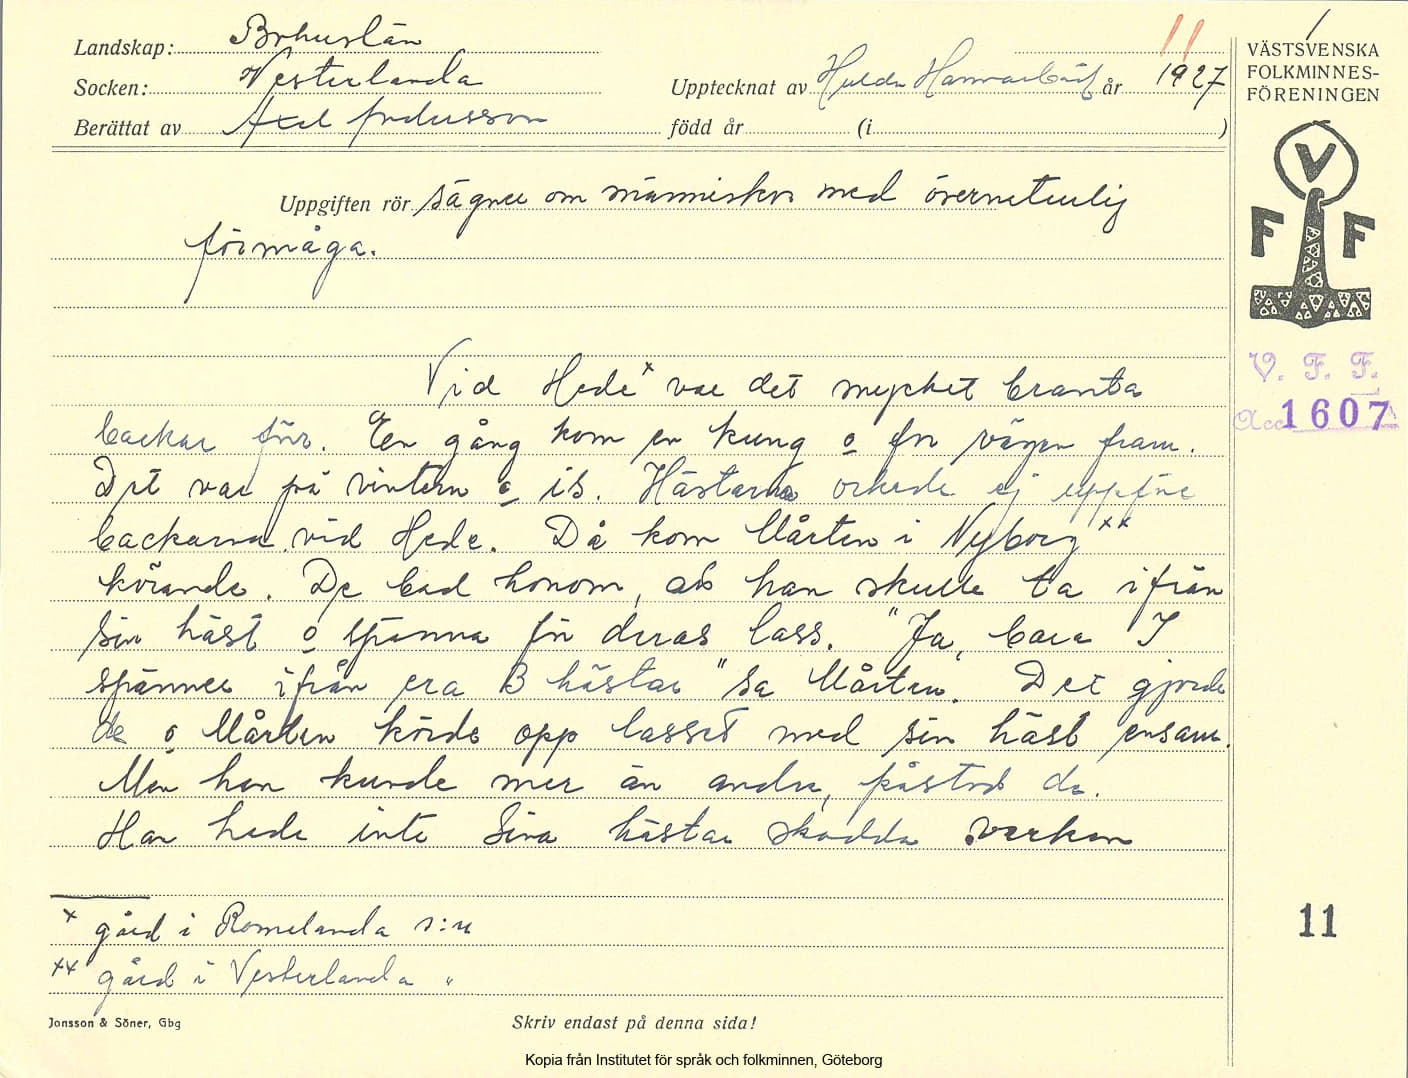 Landskap: Bohuslän
Socken: Vesterlanda
Upptecknat av Hulda Hammarbäck år 1927
Berättat av Axel Andersson född år (i )
11
VÄSTSVENSKA
FOLKMINNES-
FÖRENINGEN
V
F F
V. F. F.
Acc 1607
Uppgiften rör sägner om människor med övernaturlig
förmåga.
Vid Hede x var det mycket branta
backar förr. En gång kom en kung o for vägen fram.
Det var på vintern o is. Hästarna orkade ej uppför
backarna vid Hede. Då kom Mårten i Nyborg xx
körande. De bad honom, att han skulle ta ifrån
sin häst o spänna för deras lass. "Ja, bara I
spänner ifrån era 3 hästar" sa Mårten. Det gjorde
de o Mårten körde opp lasset med sin häst ensam.
Men han kunde mer än andra, påstod de.
Han hade inte sina hästar skodda varken
x gård i Romelanda s:n
xx gård i Vesterlanda "
11
Jonsson & Söner, Gbg
Skriv endast på denna sida!
Kopia från Institutet för språk och folkminnen, Göteborg